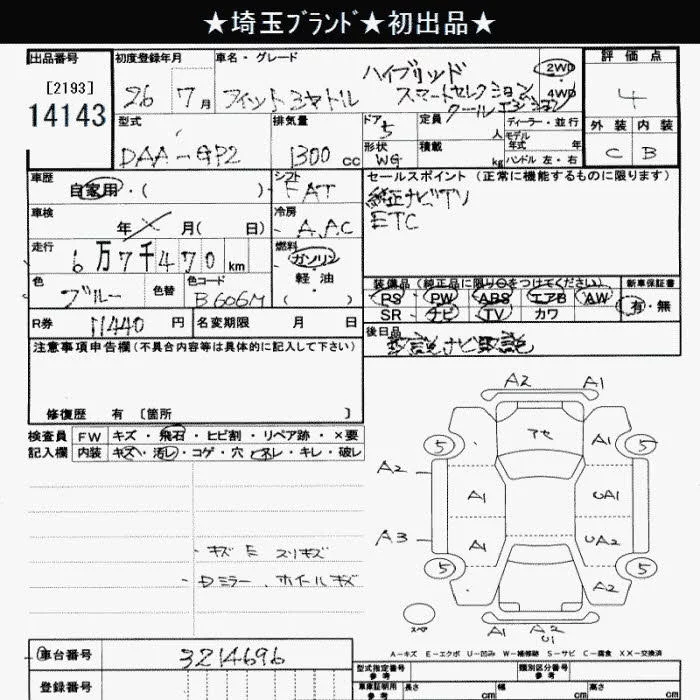 ★埼玉ﾌﾞﾗﾝﾄﾞ★初出品★
出品番号
[2193]
14143
初度登録年月
26 7月
車名・グレード
フィットシャトル ハイブリッド
スマートセレクション
クールエディション
2WD
4WD
評価点
4
外装 内装
C B
型式
DAA-GP2
排気量
1300 cc
ドア
5
定員
人
形状
WG
積載
kg
ディーラー・並行
モデル
年式 年
ハンドル 左・右
車歴
自家用・( )
シフト
FAT
車検
年 月( 日)
冷房
AAC
走行
6万7千470 km
燃料
ガソリン
軽油
( )
色
ブルー
色替
色コード
B606M
セールスポイント(正常に機能するものに限ります)
純正ナビTV
ETC
装備品(純正品に限り○をつけてください)
PS PW ABS エアB AW
SR ナビ TV カワ
新車保証書
有・無
R券
11440 円
名変期限 月 日
後日品
取説ナビ取説
注意事項申告欄(不具合内容等は具体的に記入して下さい)
修復歴 有 〔箇所 〕
検査員
記入欄
FW キズ・飛石・ヒビ割・リペア跡・×要
内装 キズ・汚レ・コゲ・穴・スレ・キレ・破レ
・キズ E スリキズ
・Dミラー、ホイールキズ
A2 A1
アセ
5 A1 5
A2
A1 UA1
A3
A1 UA2
5 A2 5
スペア
A1 A2
U1
A-キズ E-エクボ U-凹み W-補修跡 S-サビ C-腐食 XX-交換済
車台番号
3214696
登録番号
型式指定番号
参考
類別区分番号
参考
車庫証明用
参考
長さ cm
幅 cm
高さ cm